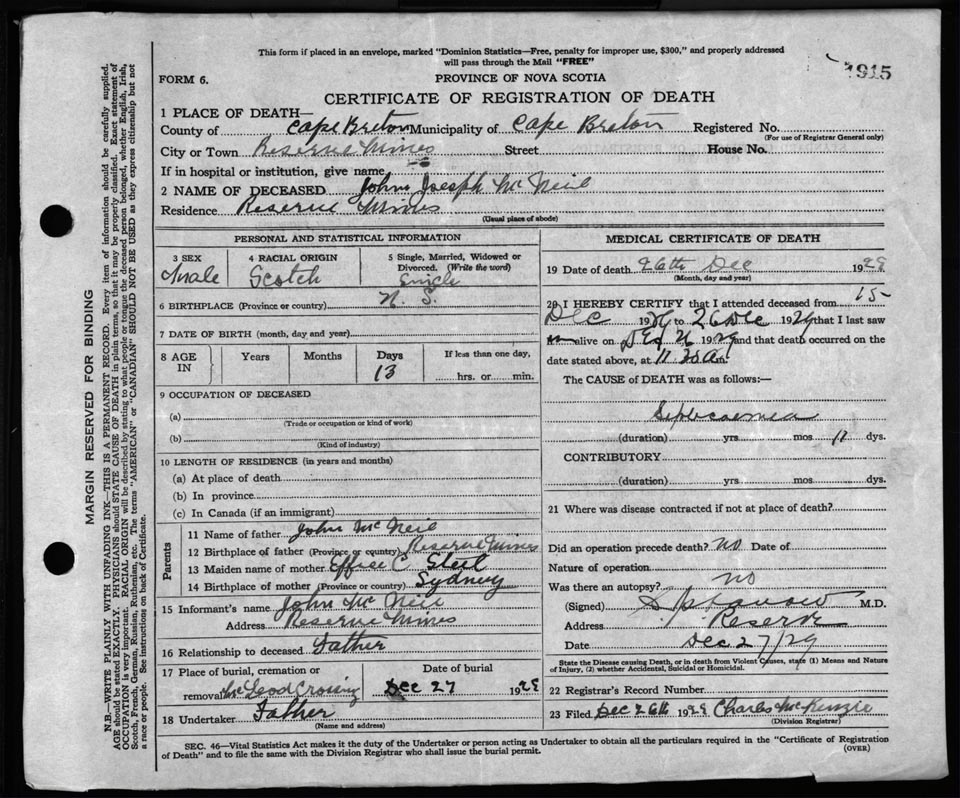 This form if placed in an envelope, marked "Dominion Statistics—Free, penalty for improper use, $300," and properly addressed
will pass through the Mail "FREE"
1915
FORM 6.
PROVINCE OF NOVA SCOTIA
CERTIFICATE OF REGISTRATION OF DEATH
1 PLACE OF DEATH—
County of Cape Breton Municipality of Cape Breton Registered No.
(For use of Registrar General only)
City or Town Reserve Mines Street House No.
If in hospital or institution, give name
2 NAME OF DECEASED John Joseph Mc Neil
Residence Reserve Mines
(Usual place of abode)
PERSONAL AND STATISTICAL INFORMATION
3 SEX 4 RACIAL ORIGIN 5 Single, Married, Widowed or
Divorced. (Write the word)
Male Scotch Single
6 BIRTHPLACE (Province or country) N. S.
7 DATE OF BIRTH (month, day and year)
8 AGE IN Years Months Days If less than one day,
13 hrs. or min.
9 OCCUPATION OF DECEASED
(a)
(Trade or occupation or kind of work)
(b)
(Kind of industry)
10 LENGTH OF RESIDENCE (in years and months)
(a) At place of death
(b) In province
(c) In Canada (if an immigrant)
Parents
11 Name of father John Mc Neil
12 Birthplace of father (Province or country) Reserve Mines
13 Maiden name of mother C. Steel
14 Birthplace of mother (Province or country) Sydney
15 Informant's name John Mc Neil
Address Reserve Mines
16 Relationship to deceased Father
17 Place of burial, cremation or Date of burial
removal McLeod Crossing Dec 27 1929
18 Undertaker Father
(Name and address)
MEDICAL CERTIFICATE OF DEATH
19 Date of death 26th Dec 1929
(Month, day and year)
20 I HEREBY CERTIFY that I attended deceased from 15
Dec 19 to 26 Dec 1929 that I last saw
alive on Dec 26 1929 and that death occurred on the
date stated above, at 11.30 am.
The CAUSE of DEATH was as follows:—
Septicaemia
(duration) yrs. mos. 11 dys.
CONTRIBUTORY
(duration) yrs. mos. dys.
21 Where was disease contracted if not at place of death?
Did an operation precede death? No Date of
Nature of operation
Was there an autopsy? no
(Signed) M.D.
Address Reserve
Date Dec 27/29
State the Disease causing Death, or in death from Violent Causes, state (1) Means and Nature
of Injury, (2) whether Accidental, Suicidal or Homicidal.
22 Registrar's Record Number
23 Filed Dec 26th 1929 Charles McKenzie
(Division Registrar)
SEC. 46—Vital Statistics Act makes it the duty of the Undertaker or person acting as Undertaker to obtain all the particulars required in the "Certificate of Registration
of Death" and to file the same with the Division Registrar who shall issue the burial permit. (OVER)
MARGIN RESERVED FOR BINDING
N.B.—WRITE PLAINLY WITH UNFADING INK—THIS IS A PERMANENT RECORD. Every item of information should be carefully supplied.
AGE should be stated EXACTLY. PHYSICIANS should STATE CAUSE OF DEATH in plain terms, so that it may be properly classified. Exact statement of
OCCUPATION is very important. RACIAL ORIGIN will be described by stating to what people or tongue the deceased person belonged, whether English, Irish,
Scotch, French, German, Russian, Ruthenian, etc. The terms "AMERICAN" or "CANADIAN" SHOULD NOT BE USED as they express citizenship but not
a race or people. See instructions on back of Certificate.